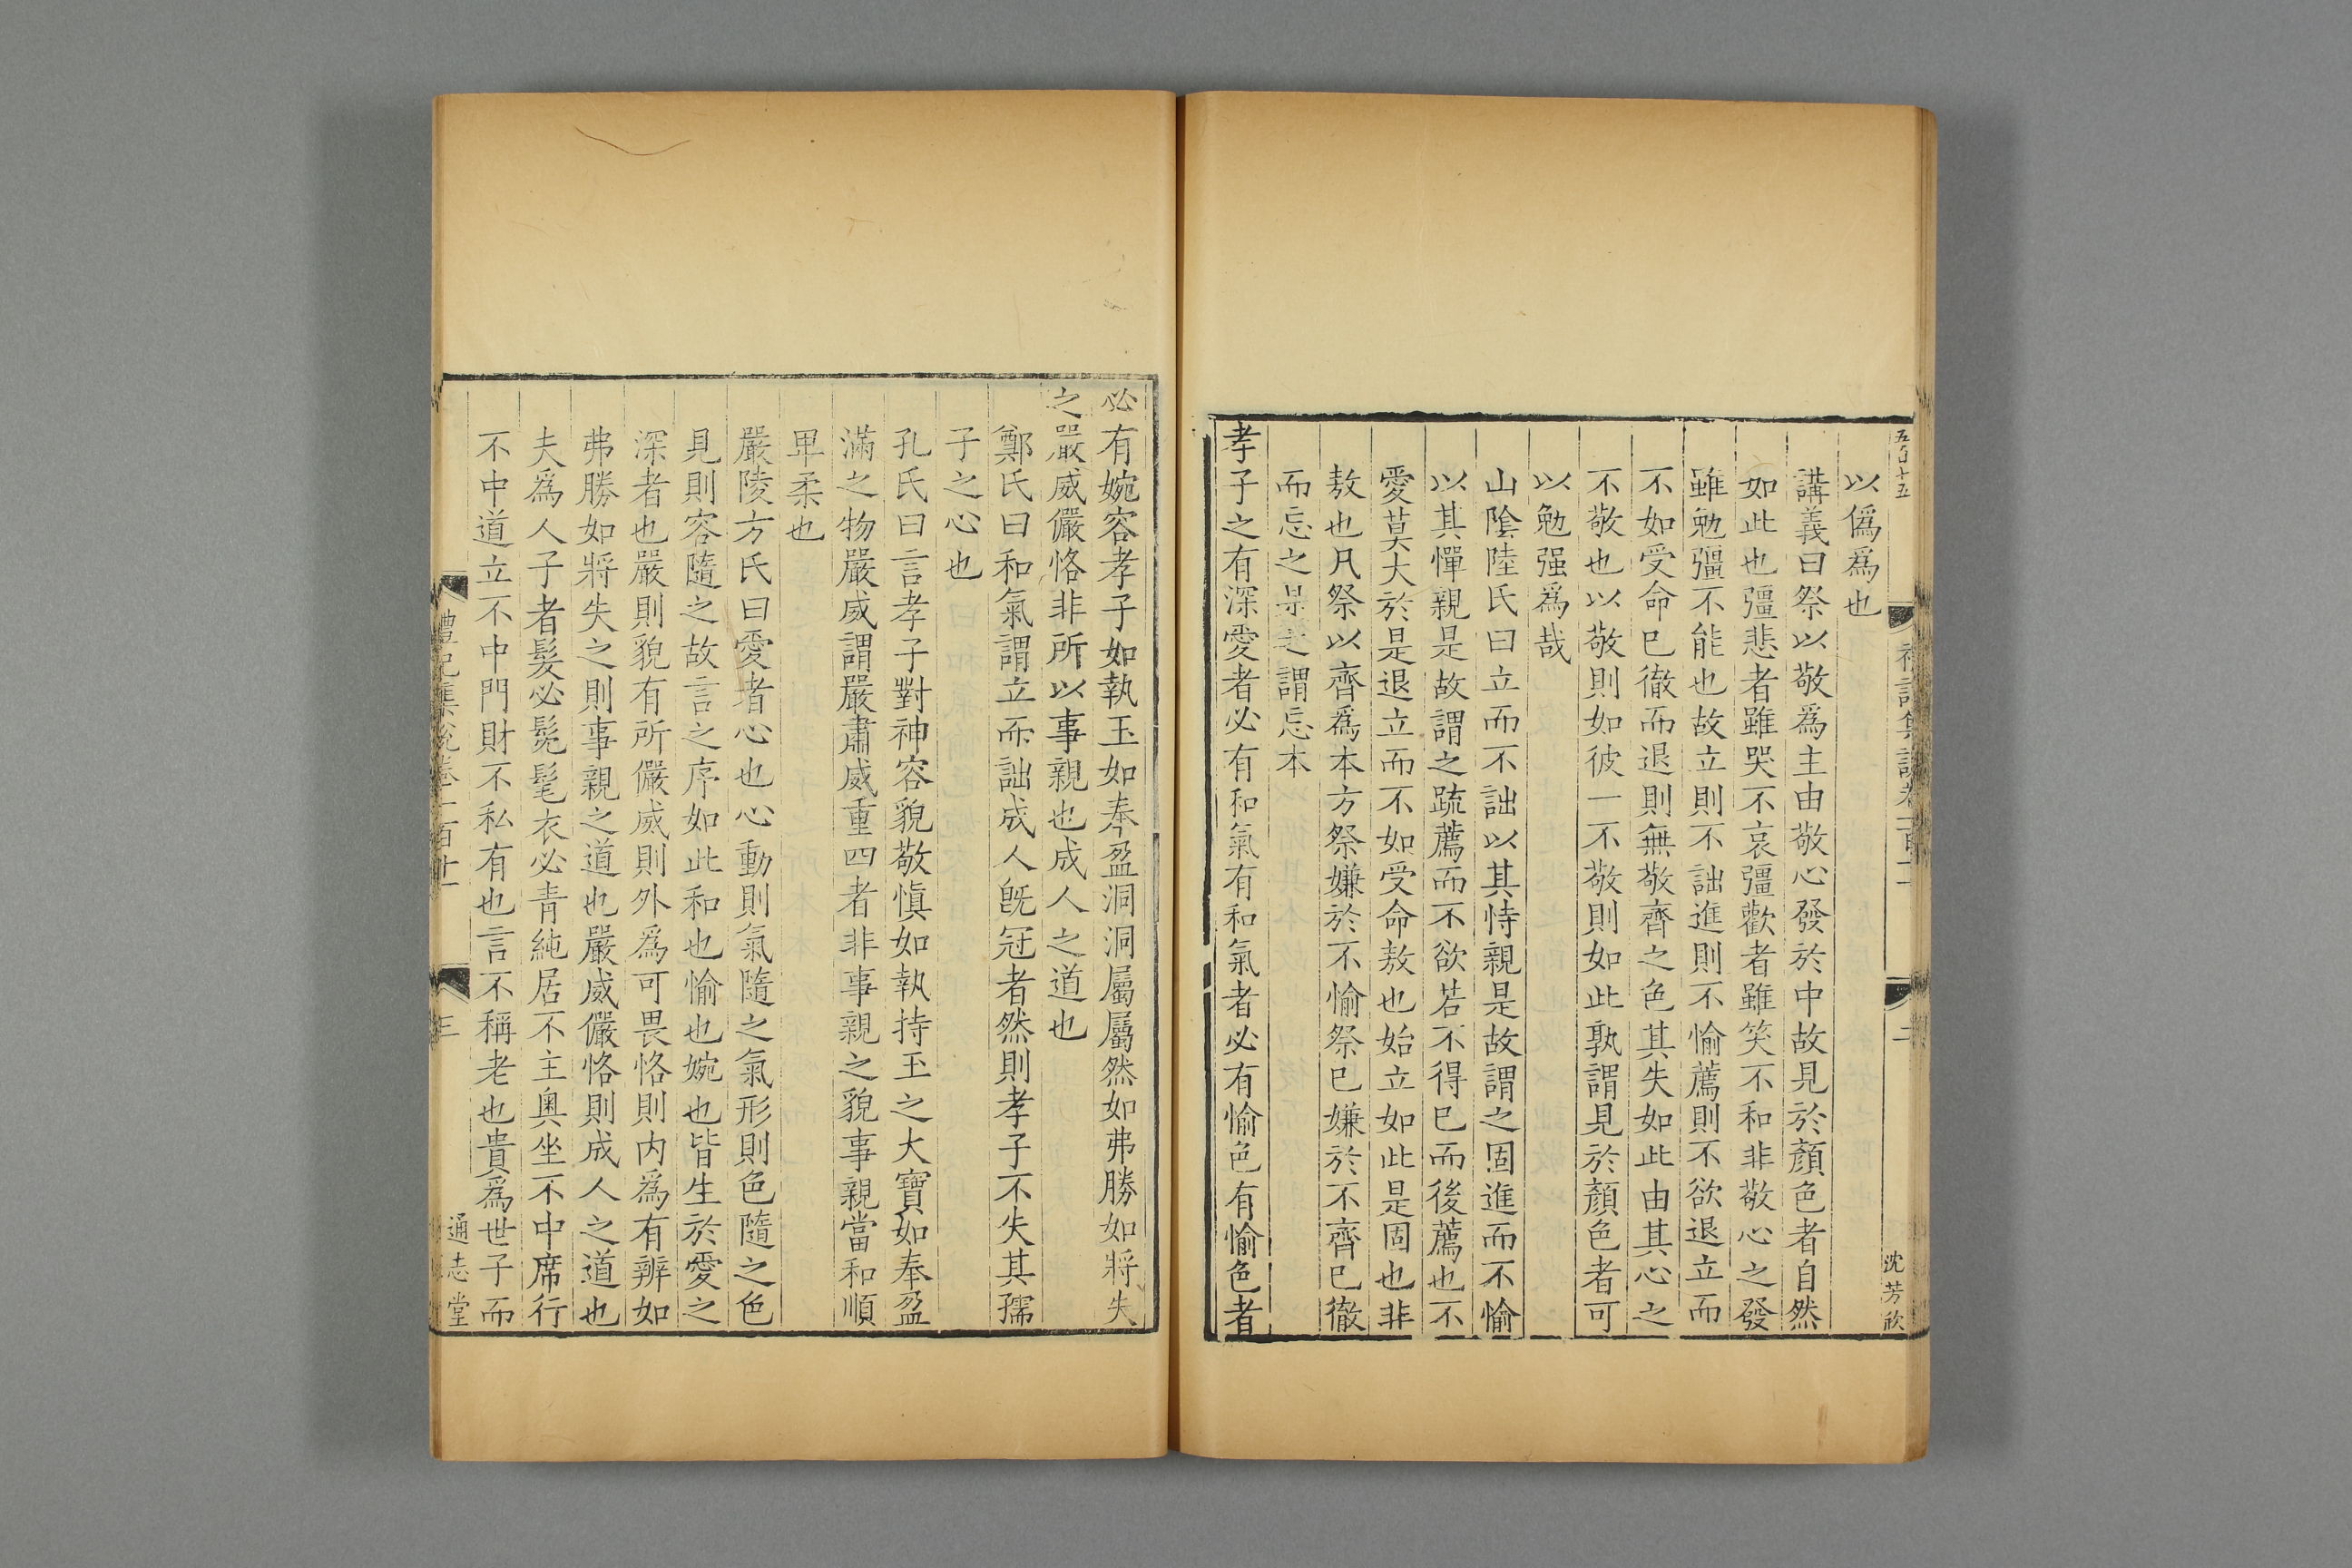 以僞爲也
講義曰祭以敬爲主由敬心發於中故見於顏色者自然
如此也彊悲者雖哭不哀彊歡者雖笑不和非敬心之發
雖勉彊不能也故立則不詘進則不愉薦則不欲退立而
不如受命已徹而退則無敬齊之色其失如此由其心之
不敬也以敬則如彼一不敬則如此孰謂見於顏色者可
以勉强爲哉
山陰陸氏曰立而不詘以其恃親是故謂之固進而不愉
以其憚親是故謂之疏薦而不欲若不得已而後薦也不
愛莫大於是退立而不如受命敖也始立如此是固也非
敖也凡祭以齊爲本方祭嫌於不愉祭已嫌於不齊已徹
而忘之是之謂忘本
孝子之有深愛者必有和氣有和氣者必有愉色有愉色者
沈芳欣
二
必有婉容孝子如執玉如奉盈洞洞屬屬然如弗勝如將失
之嚴威儼恪非所以事親也成人之道也
鄭氏曰和氣謂立而詘成人旣冠者然則孝子不失其孺
子之心也
孔氏曰言孝子對神容貌敬愼如執持玉之大寶如奉盈
滿之物嚴威謂嚴肅威重四者非事親之貌事親當和順
卑柔也
嚴陵方氏曰愛者心也心動則氣隨之氣形則色隨之色
見則容隨之故言之序如此和也愉也婉也皆生於愛之
深者也嚴則貌有所儼威則外爲可畏恪則内爲有辨如
弗勝如將失之則事親之道也嚴威儼恪則成人之道也
夫爲人子者髮必髧髦衣必青純居不主奧坐不中席行
不中道立不中門財不私有也言不稱老也貴爲世子而
禮記集說卷一百十一
三
通志堂